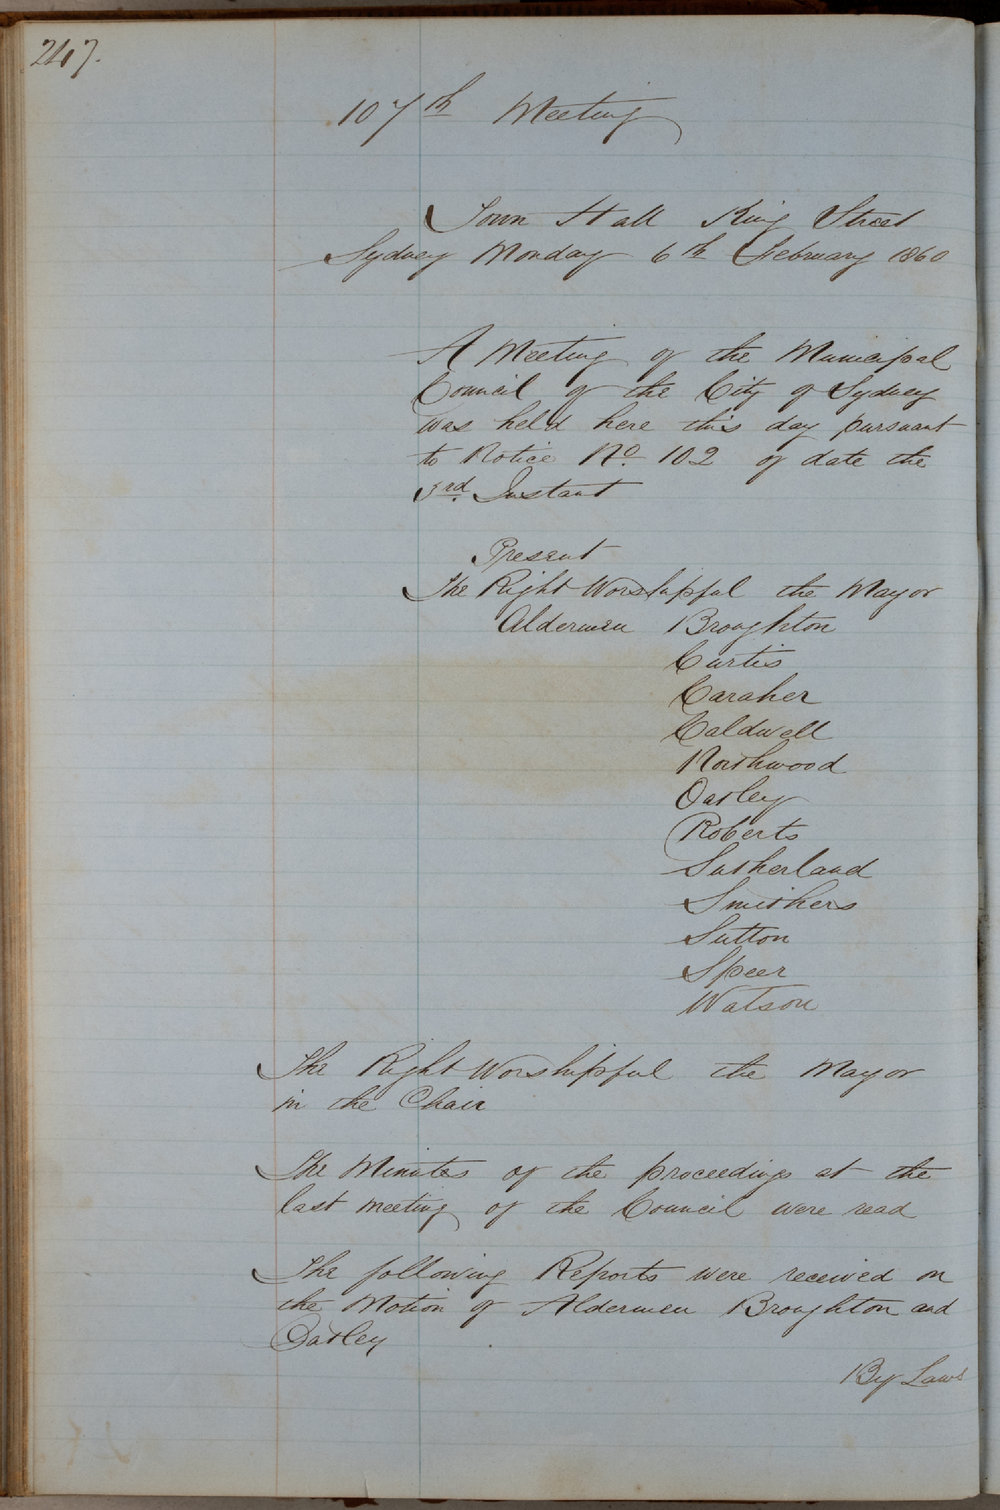 247.
107th Meeting
Town Hall King Street
Sydney Monday 6th February 1860
A Meeting of the Municipal
Council of the City of Sydney
was held here this day pursuant
to Notice No. 102 of date the
3rd. Instant
Present
The Right Worshipful the Mayor
Aldermen Broughton
Curtis
Caraher
Caldwell
Northwood
Oatley
Roberts
Sutherland
Smithers
Sutton
Speer
Watson
The Right Worshipful the Mayor
in the Chair
The Minutes of the proceedings at the
last meeting of the Council were read
The following Reports were received on
the Motion of Aldermen Broughton and
Oatley
By Laws